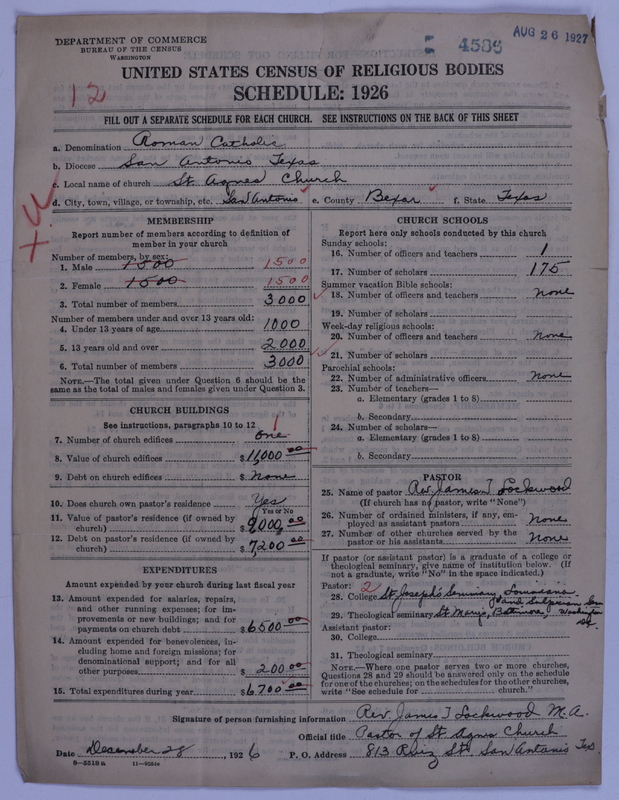 DEPARTMENT OF COMMERCE
BUREAU OF THE CENSUS
WASHINGTON
4586
AUG 26 1927
12
UNITED STATES CENSUS OF RELIGIOUS BODIES
SCHEDULE: 1926
FILL OUT A SEPARATE SCHEDULE FOR EACH CHURCH. SEE INSTRUCTIONS ON THE BACK OF THIS SHEET
a. Denomination Roman Catholic
b. Diocese San Antonio Texas
c. Local name of church St. Agnes Church
d. City, town, village, or township, etc. San Antonio e. County Bexar f. State Texas
MEMBERSHIP
Report number of members according to definition of
member in your church
Number of members, by sex:
1. Male 1500 1500
2. Female 1500 1500
3. Total number of members 3000
Number of members under and over 13 years old:
4. Under 13 years of age 1000
5. 13 years old and over 2000
6. Total number of members 3000
NOTE.—The total given under Question 6 should be the
same as the total of males and females given under Question 3.
CHURCH BUILDINGS
See instructions, paragraphs 10 to 12
7. Number of church edifices one 1
8. Value of church edifices $11,000 00
9. Debt on church edifices $ None
10. Does church own pastor's residence Yes
(Yes or No)
11. Value of pastor's residence (if owned by
church) $9000, 00
12. Debt on pastor's residence (if owned by
church) $7200 00
EXPENDITURES
Amount expended by your church during last fiscal year
13. Amount expended for salaries, repairs,
and other running expenses; for im-
provements or new buildings; and for
payments on church debt $6500 00
14. Amount expended for benevolences, in-
cluding home and foreign missions; for
denominational support; and for all
other purposes $ 200 00
15. Total expenditures during year $6700 00
CHURCH SCHOOLS
Report here only schools conducted by this church
Sunday schools:
16. Number of officers and teachers 1
17. Number of scholars 175
Summer vacation Bible schools:
18. Number of officers and teachers None
19. Number of scholars
Week-day religious schools:
20. Number of officers and teachers None
21. Number of scholars
Parochial schools:
22. Number of administrative officers None
23. Number of teachers—
a. Elementary (grades 1 to 8)
b. Secondary
24. Number of scholars—
a. Elementary (grades 1 to 8)
b. Secondary
PASTOR
25. Name of pastor Rev. James T Lockwood
(If church has no pastor, write "None")
26. Number of ordained ministers, if any, em-
ployed as assistant pastors None
27. Number of other churches served by the
pastor or his assistants None
If pastor (or assistant pastor) is a graduate of a college or
theological seminary, give name of institution below. (If
not a graduate, write "No" in the space indicated.)
Pastor: 2
28. College St Joseph's Seminary, Louisiana.
29. Theological seminary St Marys, Baltimore, and Sulpician Sem Washington
Assistant pastor:
30. College
31. Theological seminary
NOTE.—Where one pastor serves two or more churches,
Questions 28 and 29 should be answered only on the schedule
for one of the churches; on the schedules for the other churches,
write "See schedule for church."
Signature of person furnishing information Rev. James T Lockwood M.A.
Official title Pastor of St Agnes Church
Date December 28, 1926 P. O. Address 813 Ruiz St. San Antonio Tex
8—5518 a 11—9084a